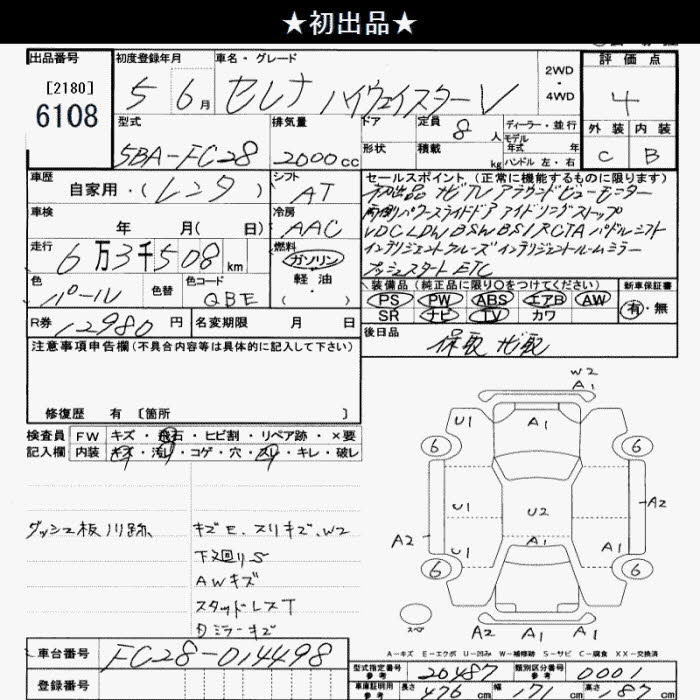 ★初出品★
出品番号
[2180]
6108
初度登録年月
5 6月
車名・グレード
セレナ ハイウェイスターV
2WD
・
4WD
評価点
4
外装 内装
C B
型式
5BA-FC28
排気量
2000cc
ドア
形状
定員
8人
積載
kg
ディーラー・並行
モデル
年式 年
ハンドル 左・右
車歴
自家用・(レンタ)
シフト
AT
車検
年 月( 日)
冷房
AAC
走行
6万3千508km
燃料
ガソリン
軽油
( )
色
パール
色替
色コード
QBE
R券
12980円
名変期限 月 日
セールスポイント (正常に機能するものに限ります)
初出品 ナビTV アラウンドビューモニター
両側パワースライドドア アイドリングストップ
VDC LDW BSW BSI RCTA パドルシフト
インテリジェントクルーズ インテリジェントルームミラー
プッシュスタート ETC
装備品(純正品に限り○をつけてください)
PS PW ABS エアB AW
SR ナビ TV カワ
新車保証書
有・無
後日品
保取 ナビ取
注意事項申告欄(不具合内容等は具体的に記入して下さい)
修復歴 有 [箇所 ]
検査員
記入欄
FW キズ・飛石・ヒビ割・リペア跡・×要
内装 キズ・汚レ・コゲ・穴・スレ・キレ・破レ
ダッシュ板川跡
キズE、スリキズ、W2
下廻りS
AWキズ
スタッドレスT
ミラーキズ
W2
A1
U1
A1
6
6
U1
U2
A2
A2
U1
A1
A1
6
6
スペ
A2
A1
A1
A-キズ E-エクボ U-凹み W-補修跡 S-サビ C-腐食 XX-交換済
車台番号
FC28-014498
登録番号
型式指定番号
参考
20487
類別区分番号
参考
0001
車庫証明用
参考
長さ 476cm
幅 171cm
高さ 87cm